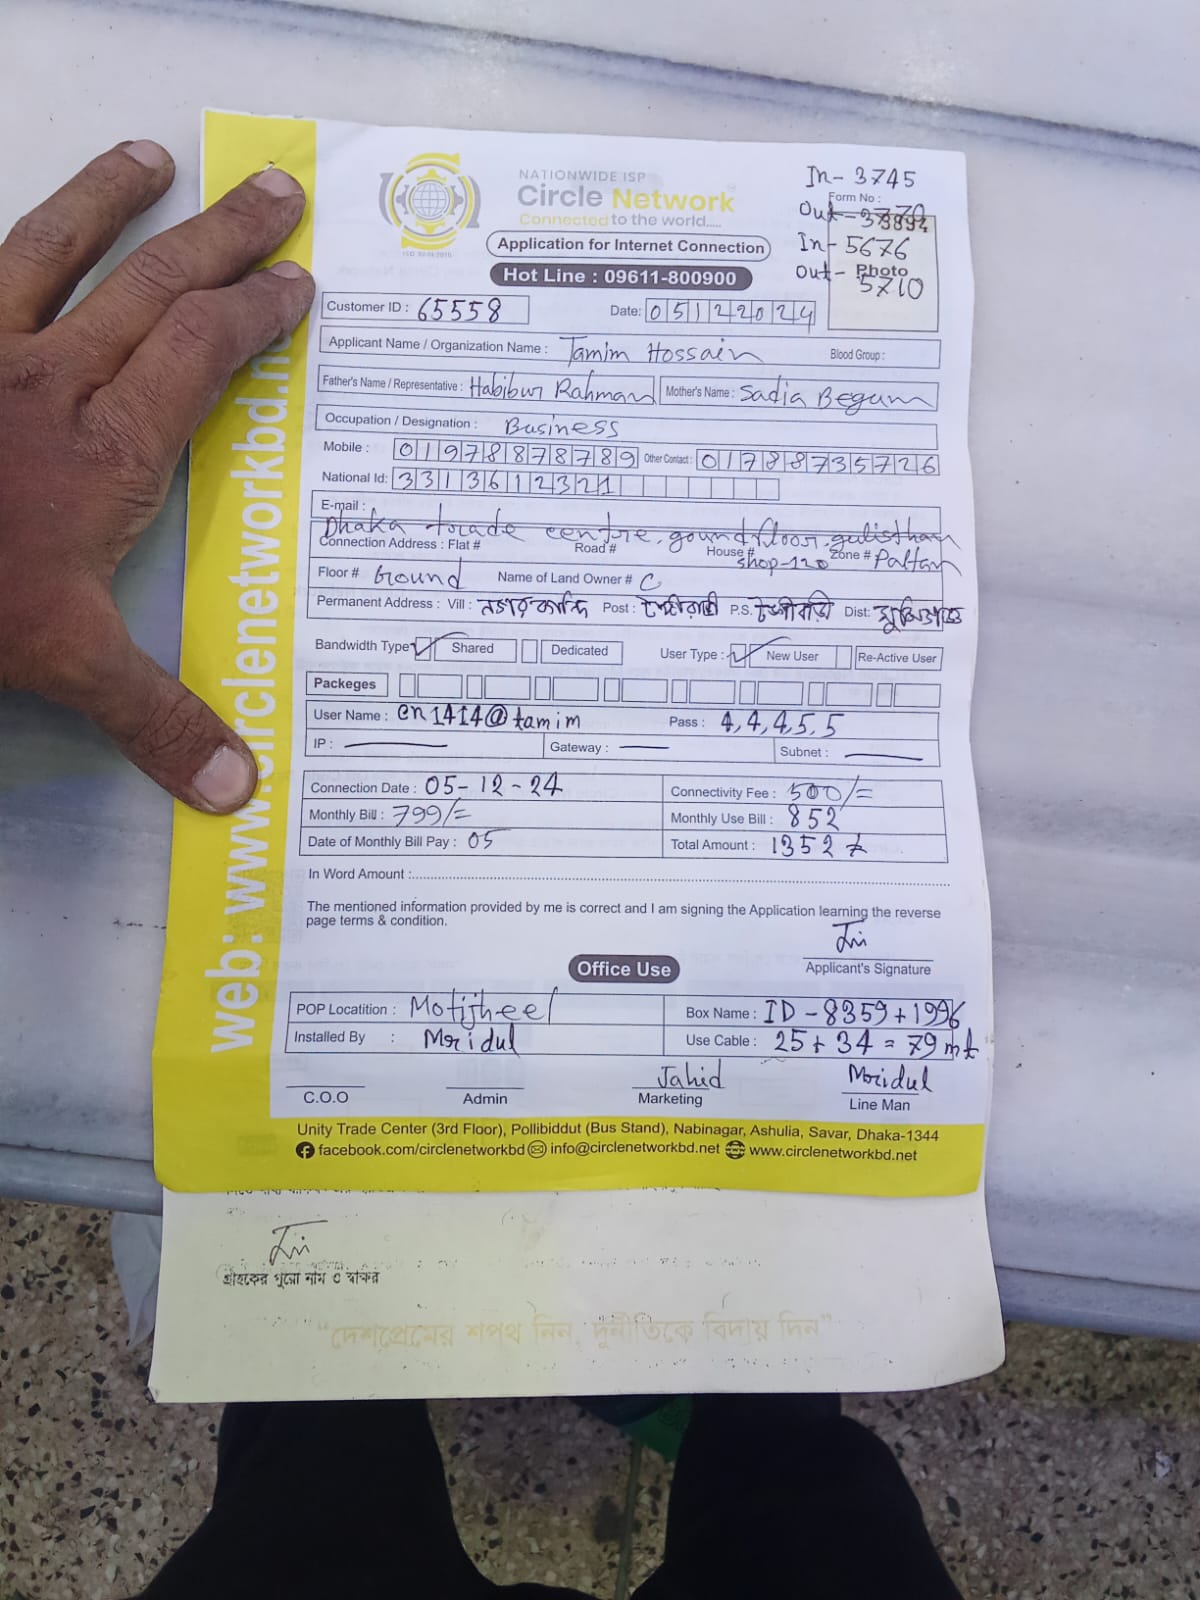 NATIONWIDE ISP
Circle Network
Connected to the world.....
Application for Internet Connection
Hot Line : 09611-800900
In- 3745
Form No :
Out-
In- 5676
Out- Photo
5710
Customer ID : 65558
Date: 05122024
Applicant Name / Organization Name : Tamim Hossain Blood Group :
Father's Name / Representative : Habibur Rahman Mother's Name : Sadia Begum
Occupation / Designation : Business
Mobile : 01978878789 Other Contact : 01788735726
National Id: 3313612321
E-mail :
Dhaka trade centre, gound floor, gulisthan
Connection Address : Flat # Road # House # shop-120 Zone # Paltan
Floor # Ground Name of Land Owner # C
Permanent Address : Vill : Post : P.S. Dist:
Bandwidth Type Shared Dedicated User Type : New User Re-Active User
Packeges
User Name : cn1414@tamim Pass : 4,4,4,5,5
IP : Gateway : Subnet :
Connection Date : 05-12-24 Connectivity Fee : 500/=
Monthly Bill : 799/= Monthly Use Bill : 852
Date of Monthly Bill Pay : 05 Total Amount : 1352
In Word Amount :
The mentioned information provided by me is correct and I am signing the Application learning the reverse
page terms & condition.
Applicant's Signature
Office Use
POP Locatition : Motijheel Box Name : ID - 8359+1996
Installed By : Mridul Use Cable : 25+34=79 mt
Jahid Mridul
C.O.O Admin Marketing Line Man
Unity Trade Center (3rd Floor), Pollibiddut (Bus Stand), Nabinagar, Ashulia, Savar, Dhaka-1344
facebook.com/circlenetworkbd info@circlenetworkbd.net www.circlenetworkbd.net
web: www.circlenetworkbd.ne
গ্রাহকের পুরো নাম ও স্বাক্ষর
“দেশপ্রেমের শপথ নিন, দুর্নীতিকে বিদায় দিন”